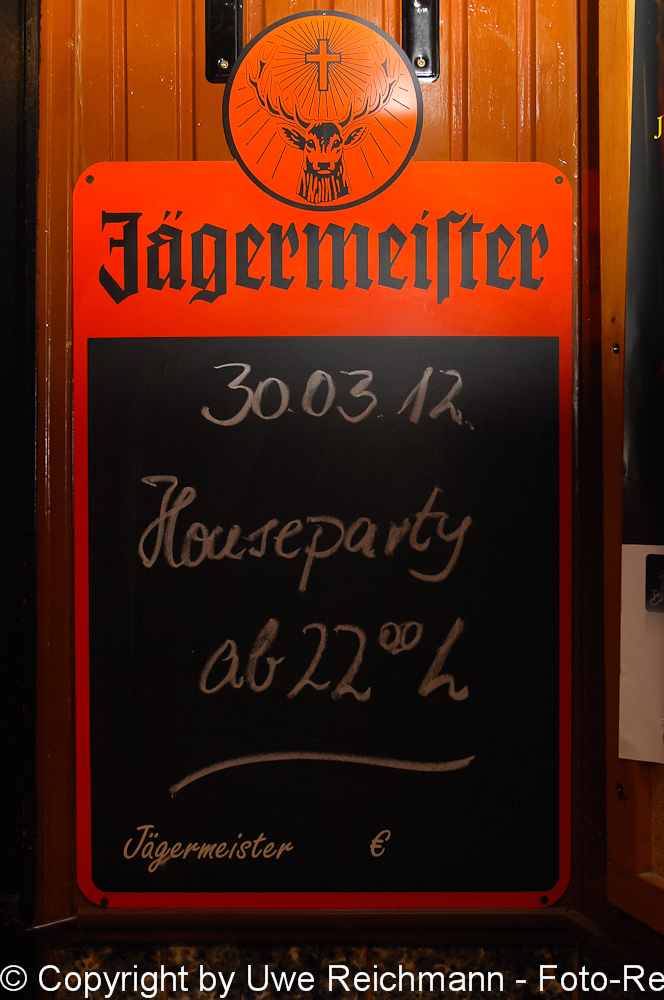 Jägermeiſter
30.03.12.
Houseparty
ab 22⁰⁰ h
Jägermeister €
© Copyright by Uwe Reichmann - Foto-Re